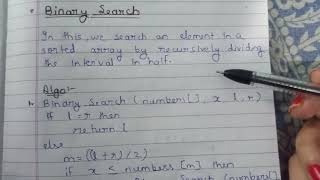 Binary Search
In this, we search an element in a
sorted array by recursively dividing
the interval in half.
Algo:-
1. Binary Search (numbers[], x, l, r)
If l = r then
return l
else
m = ((l + r) / 2)
if x ≤ numbers [m] then
Search (numbers[]